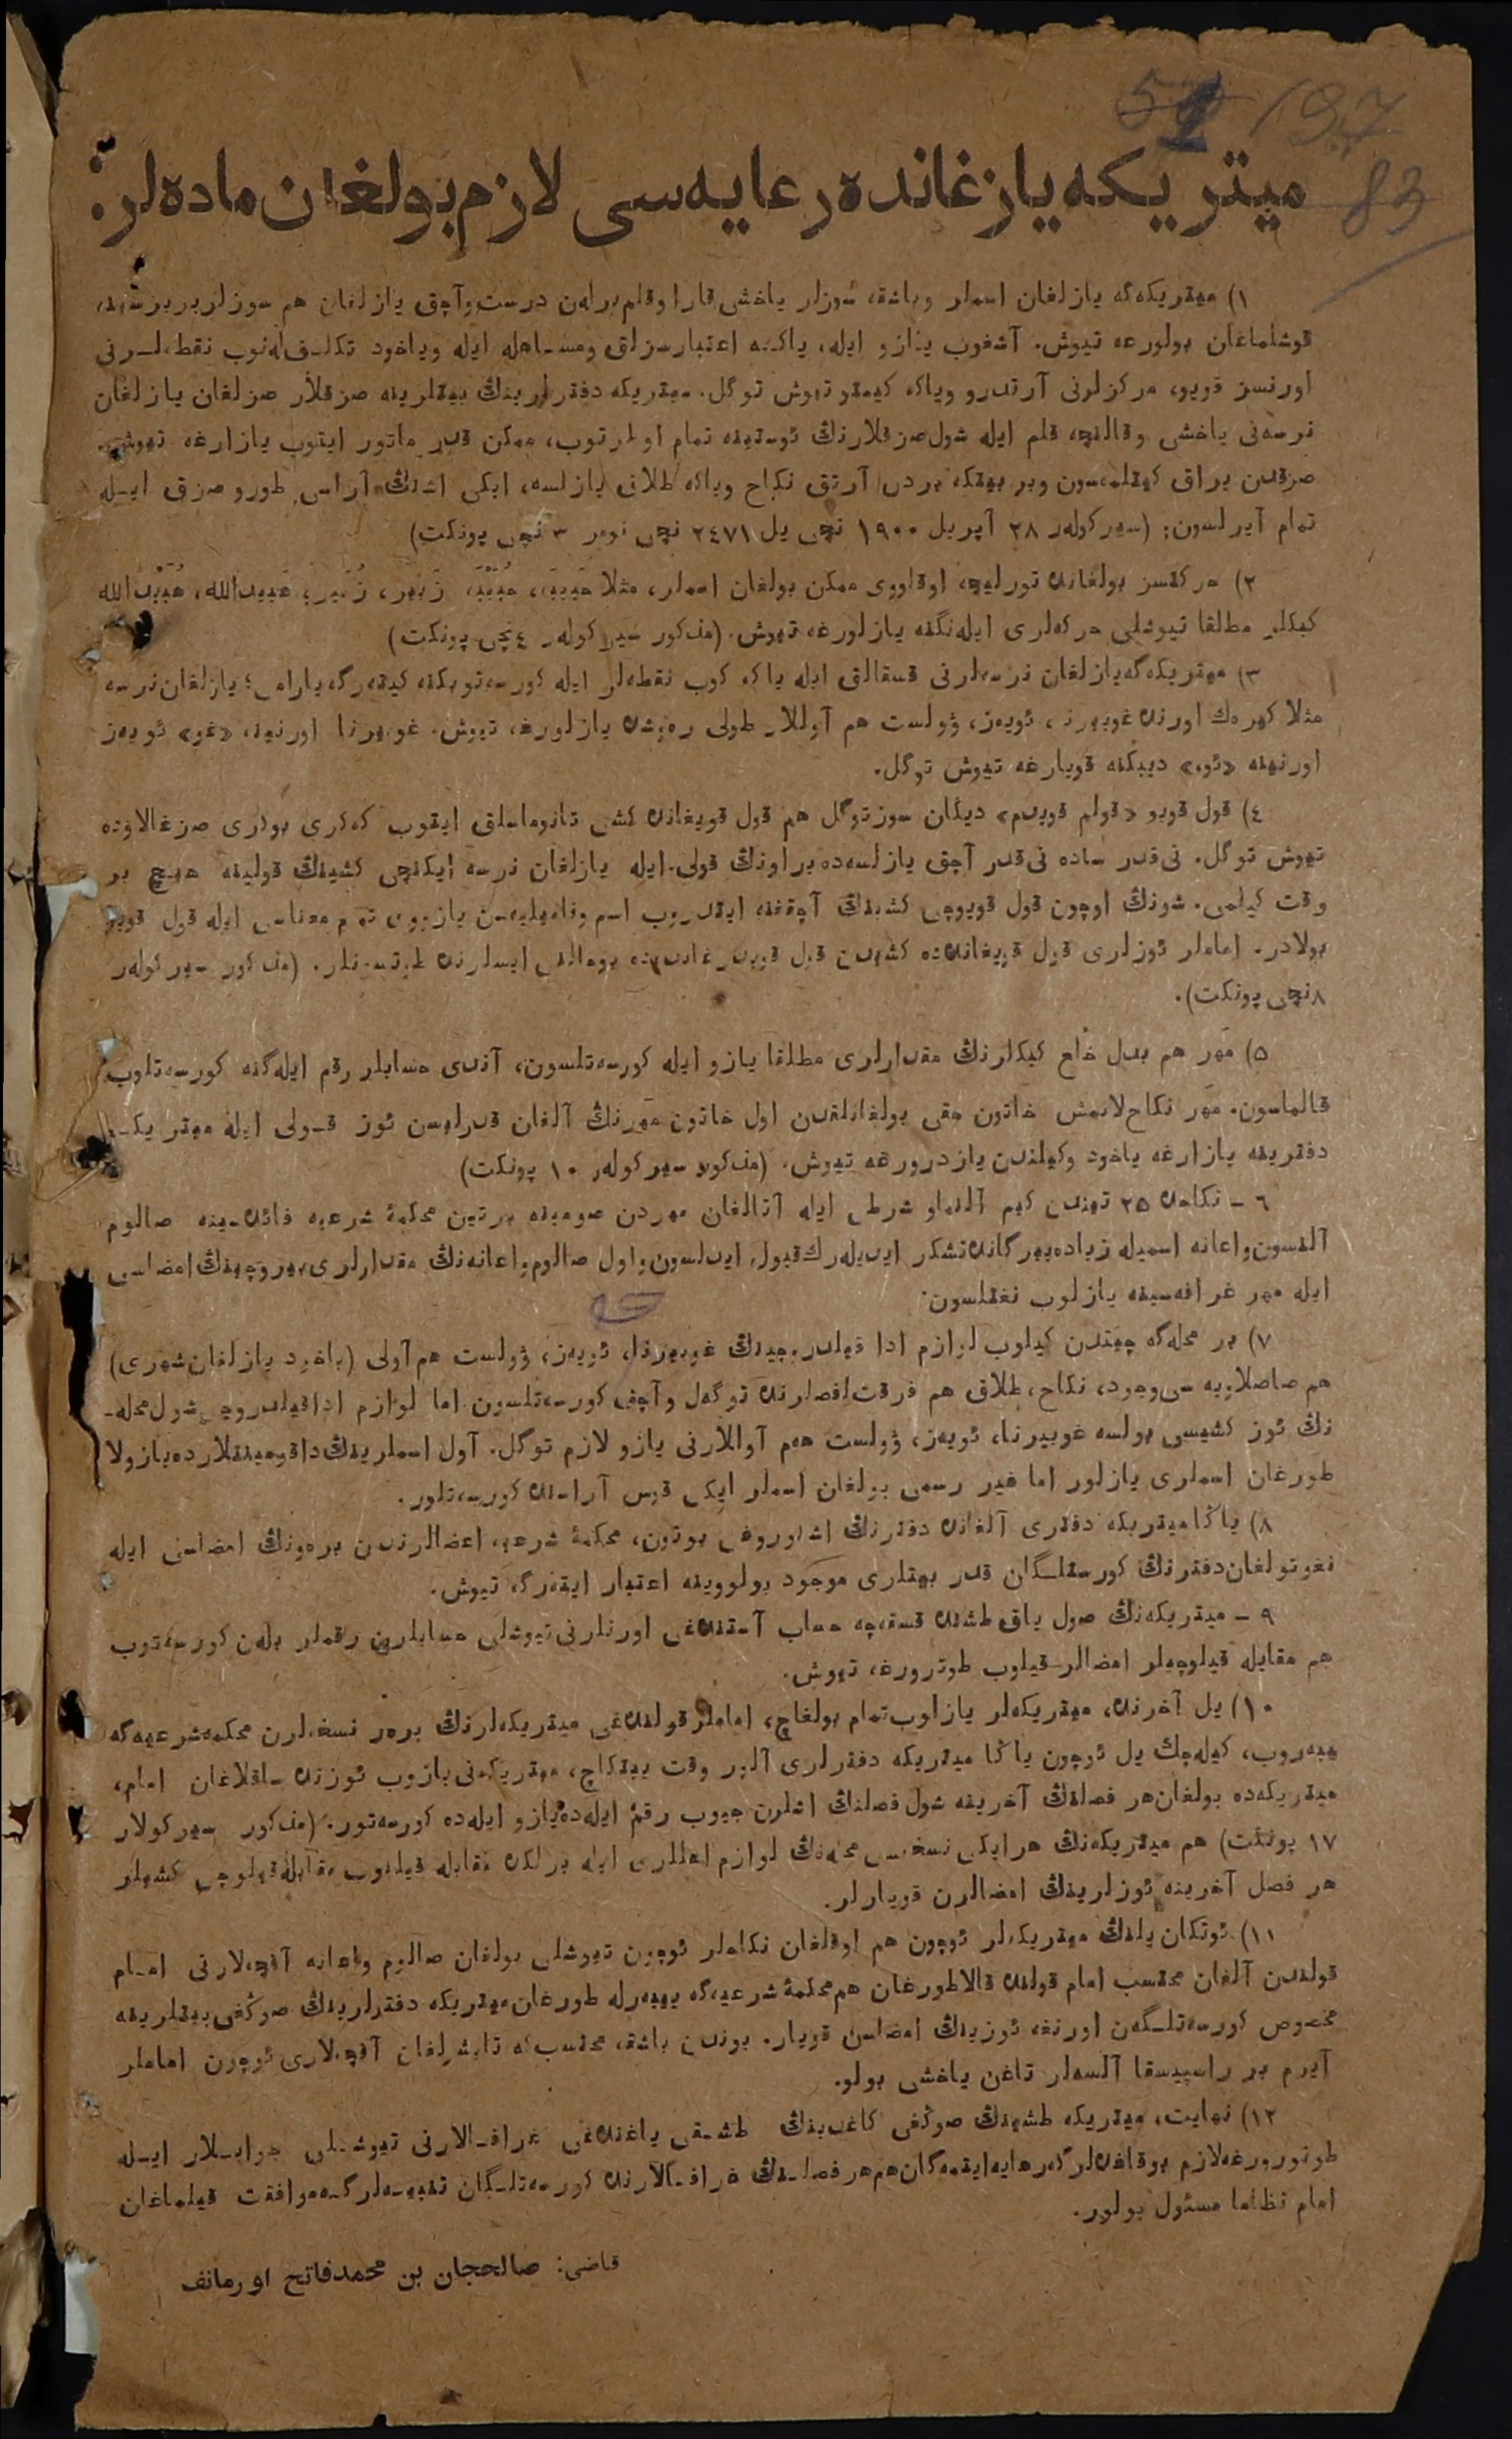 51 197
83
میتریکه یازغانده رعایه‌سی لازم بولغان ماده‌لر:
١) میتریکه‌گه یازلغان اسملر وباشقه سوزلر یاخشی قارا وقلم برله‌ن درست وآچق یازلغان هم سوزلر بر برسینه
قوشلماغان بولورغه تیوش. آشغوب یازو ایله، یاکه اعتبارسزلق ومساهله ایله ویاخود تکلف له‌نوب نقطه‌لرنی
اورنسز قویو، مرکزلونی آرتدرو ویاکه کیمتو تیوش توگل. میتریکه دفترلرینڭ بیتلرینه صزقلار صزلغان یازلغان
نرسه‌نی یاخشی وقالنچه قلم ایله شول صزقلارنڭ ئوستینه تمام اولرتوب، ممکن قدر ماتور ایتوب یازارغه تیوش.
صزقدن یراق کیتلمه‌سون وبر بیتکه بردن آرتق نکاح ویاکه طلاق یازلسه، ایکی اشنڭ آراسی طورو صزق ایله
تمام آیرلسون: (سیرکولەر ٢٨ آپریل ١٩٠٠ نچی یل ٢٤٧١ نچی نومر ٣ نچی پونکت)
٢) حرکتسز بولغانده تورلیچه اوقلووی ممکن بولغان اسملر، مثلا حَبیبَه، حُبَیْبَه، زَبیر، زُبَیر، عَبیدالله، عُبَیْدالله
کبکلر مطلقا تیوشلی حرکه‌لری ایله‌نگنه یازلورغه تیوش. (مذکور سیرکولەر ٤ نچی پونکت)
٣) میتریکه‌گه یازلغان نرسه‌لرنی قسقالق ایله یاکه کوب نقطه‌لر ایله کورسه‌توبکنه کیتەرگه یارامی؛ یازلغان نرسه
مثلا کیره‌ك اورنده غوبیرنا، ئویه‌ز، ۋولست هم آوللار طولی ره‌وشده یازلورغه تیوش. غوبیرنا اورنینه «غو» ئویه‌ز
اورنینه «ئو» دیبگنه قویارغه تیوش توگل.
٤) قول قویو «قولم قویدم» دیگان سوز توگل هم قول قویغانده کشی تانوماسلق ایتوب که‌کری بوکری صزغالاوده
تیوش توگل. نی‌قدر ساده نی‌قدر آچق یازلسه‌ده براونڭ قولی ایله یازلغان نرسه ایکنچی کشینڭ قولینه هیچ بر
وقت کیلمی. شونڭ اوچون قول قویوچی کشینڭ آچقغنه ایتدروب اسم وفامیلیه‌سن یازووی تمام معناسی ایله قول قویو
بولادر. اماملر ئوزلری قول قویغانده‌ده کشیدن قول قویدرغاندەده بومالفی ایسلرنده طوتسونلر. (مذکور سیرکولەر
٨ نچی پونکت).
٥) مهر هم بدل خلع کبکلرنڭ مقدارلری مطلقا یازو ایله کورسه‌تلسون، آندی حسابلر رقم ایله‌گنه کورسه‌تلوب
قالماسون. مهر نکاح‌لانمش خاتون حقی بولغانلقدن اول خاتون مهرنڭ آلغان قدرلیسن ئوز قولی ایله میتریکه
دفترینه یازارغه یاخود وکیلندن یازدرورغه تیوش. (مذکور سیرکولەر ١٠ پونکت)
٦ – نکاحده ٢٥ تیندن کیم آلنماو شرطی ایله آتالغان مهردن صومینه برتین محکمهٔ شرعیه فائده‌سینه صالوم
آلنسون واعانه اسمیله زیاده بیرگانده تشکر ایدیله‌رك قبول ایدلسون واول صالوم واعانه‌نڭ مقدارلری بیروچینڭ امضاسی
ایله مهر غرافه‌سینه یازلوب نغتلسون.
٧) بر محله‌گه چیتدن کیلوب لوازم ادا قیلدروچینڭ غوبیرنا، ئویه‌ز، ۋولست هم آولی (یاخود یازلغان شهری)
هم صاصلاویه سی وجود، نکاح، طلاق هم فرقت فصلرنده توگه‌ل وآچق کورسه‌تلسون اما لوازم ادا قیلدروچی شول محله‌
نڭ ئوز کشیسی بولسه غوبیرنا، ئویه‌ز، ۋولست هه‌م آوللارنی یازو لازم توگل. آول اسملرینڭ داقومینتلارده یازولا
طورغان اسملری یازلور اما غیر رسمی بولغان اسملر ایکی قوس آراسنده کورسه‌تلور.
٨) یاڭا میتریکه دفتری آلغانده دفترنڭ اشناوروفی بوتون، محکمهٔ شرعیه اعضالرندن بره‌ونڭ امضاسی ایله
نغوتولغان دفترنڭ کورستلگان قدر بیتلری موجود بولووینه اعتبار ایته‌رگه تیوش.
٩ – میتریکه‌نڭ صول یاق طشنده قسقه‌چه حساب آستنده‌غی اورنلرنی تیوشلی حسابلرین رقملر بله‌ن کورسه‌توب
هم مقابله قیلوچیلر امضالر قیلوب طوترورغه تیوش.
١٠) یل آخرنده میتریکه‌لر یازلوب تمام بولغاچ، اماملر قولنده‌غی میتریکه‌لرنڭ بره‌ر نسخه‌لرن محکمه‌شرعیه‌گه
ییبه‌روب، کیله‌چك یل ئوچون یاڭا میتریکه دفترلری آلور وقت ییتکاچ، میتریکه‌نی یازوب ئوزنده ساقلاغان امام،
میتریکه‌ده بولغان هر فصلنڭ آخرینه شول فصلنڭ اشلرن جییوب رقم ایله‌ده یازو ایله‌ده کورسه‌تور. (مذکور سیرکولار
١٧ پونکت) هم میتریکه‌نڭ هر ایکی نسخه‌سی محله‌نڭ لوازم اهللری ایله برلکده مقابله قیلنوب مقابله قیلوچی کشیلر
هر فصل آخرینه ئوزلرینڭ امضالرن قویارلر.
١١) ئوتکان یلنڭ میتریکه‌لر ئوچون هم اوقلغان نکاحلر ئوچون تیوشلی بولغان صالوم واعانه آقچه‌لارنی امام
قولندن آلغان محتسب امام قولنده قالاطورغان هم محکمهٔ شرعیه‌گه ییبه‌رله طورغان میتریکه دفترلرینڭ صوڭغی بیتلرینه
مخصوص کورسه‌تلگه‌ن اورنغه ئوزینڭ امضاسن قویار. بوندن باشقه محتسب‌که تابشرلغان آقچه‌لاری ئوچون اماملر
آیرم بر راسپیسقا آلسه‌لر تاغن یاخشی بولو.
١٢) نهایت، میتریکه طشینڭ صوڭغی کاغدینڭ طشقی یاغنده‌غی غرافه‌لارنی تیوشلی جوابلار ایله
طوتورورغه لازم بوقاعده‌لرگه رعایه ایتمه‌گان هم هر فصلنڭ غرافه‌لارنده کورسه‌تلگان تنبیه‌لرگه موافقت قیلماغان
امام نظاما مسئول بولور.
قاضی: صالحجان بن محمدفاتح اورمانف